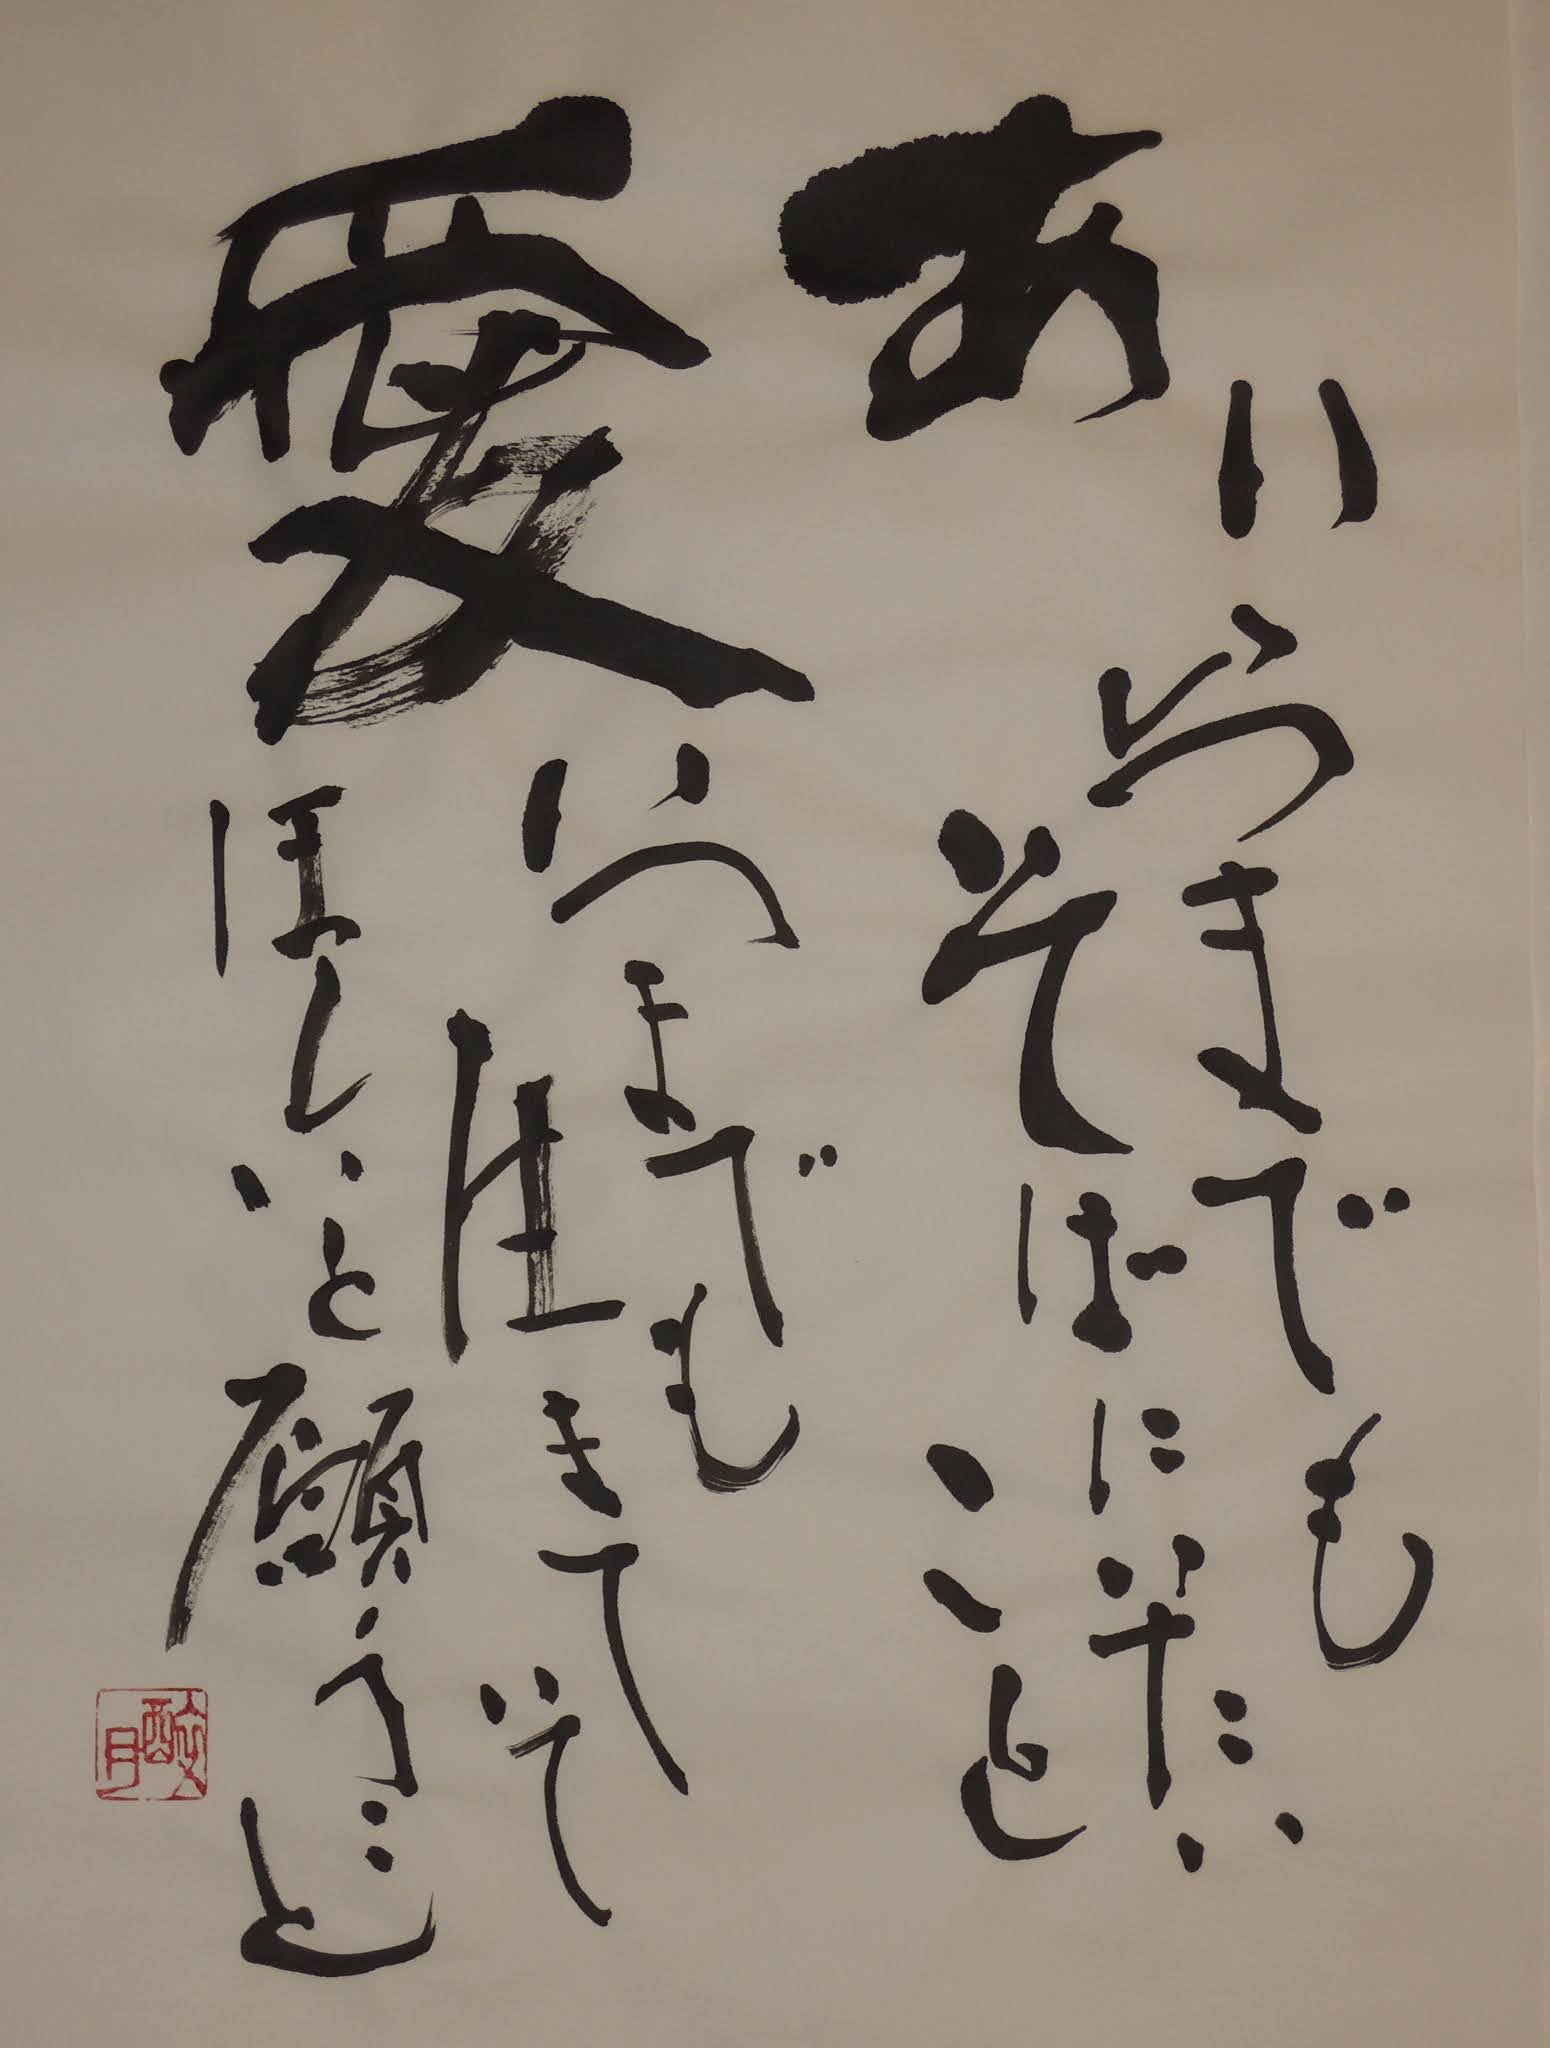 あい
いつまでも
そばにいたい
こと
愛
いつまでも
生きていて
ほしいと願うこと
酔月